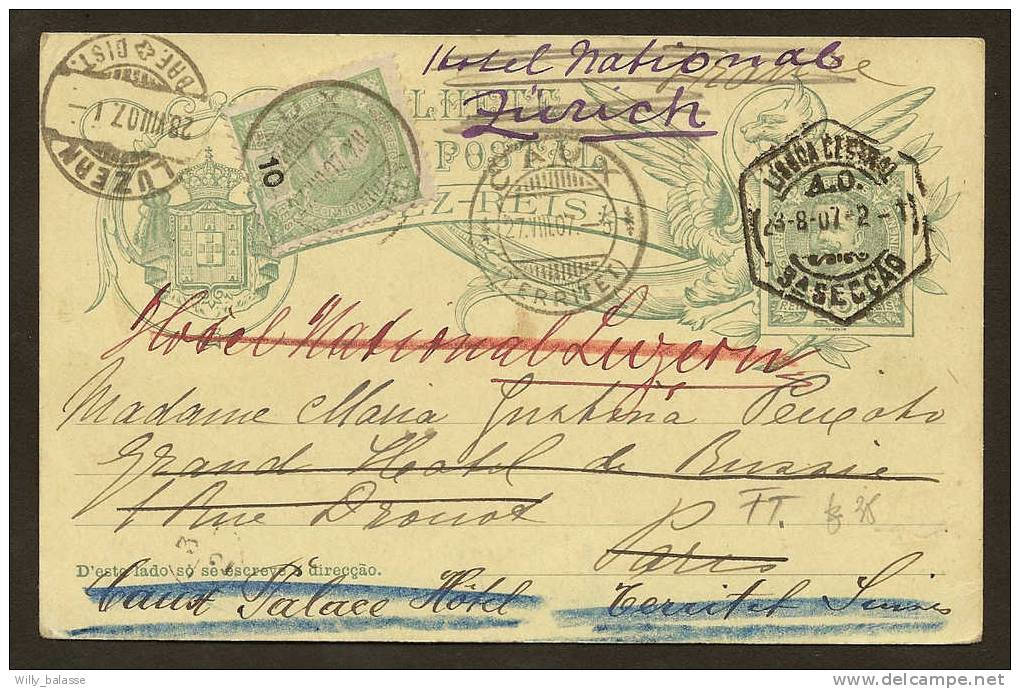 Hotel National
France
Zürich
BILHETE
POSTAL
DEZ-REIS
10
LUZERN
28.VIII.07.1
BRF. DIST.
CAUX
27.VIII.07.
(TERRITET)
A.O.
23-8-07-2-T
3ASECÇÃO
Hotel National Luzern
Madame Maria Justina Peixoto
Grand Hotel de Russie
1 Rue Drouot
Paris
TT
D'este lado só se escreve a direcção.
Caux Palace Hôtel Territet Suisse
Willy_balasse